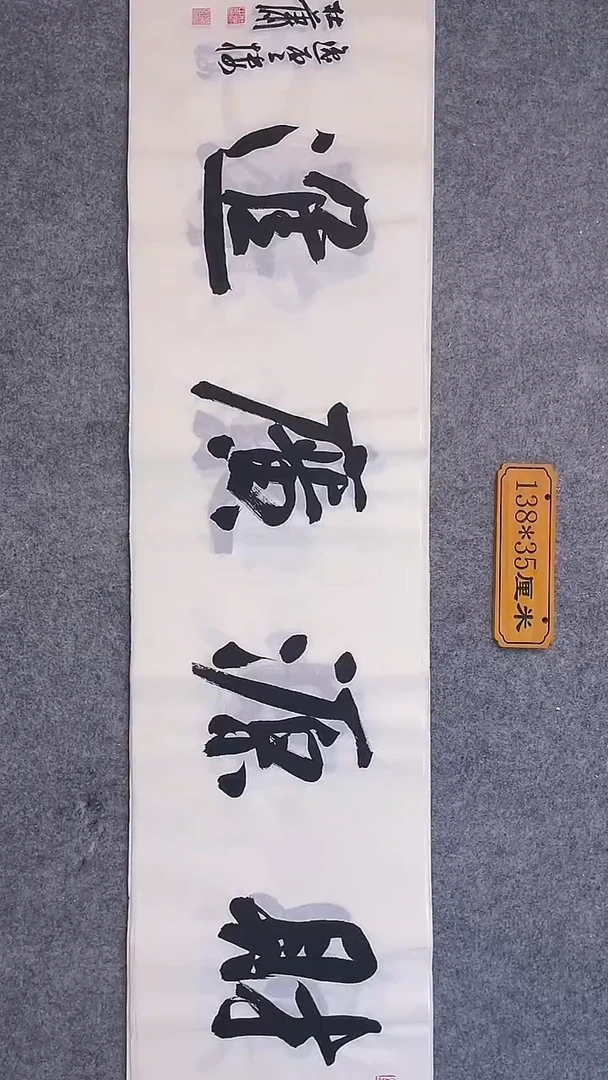 財源廣進
138*35厘米